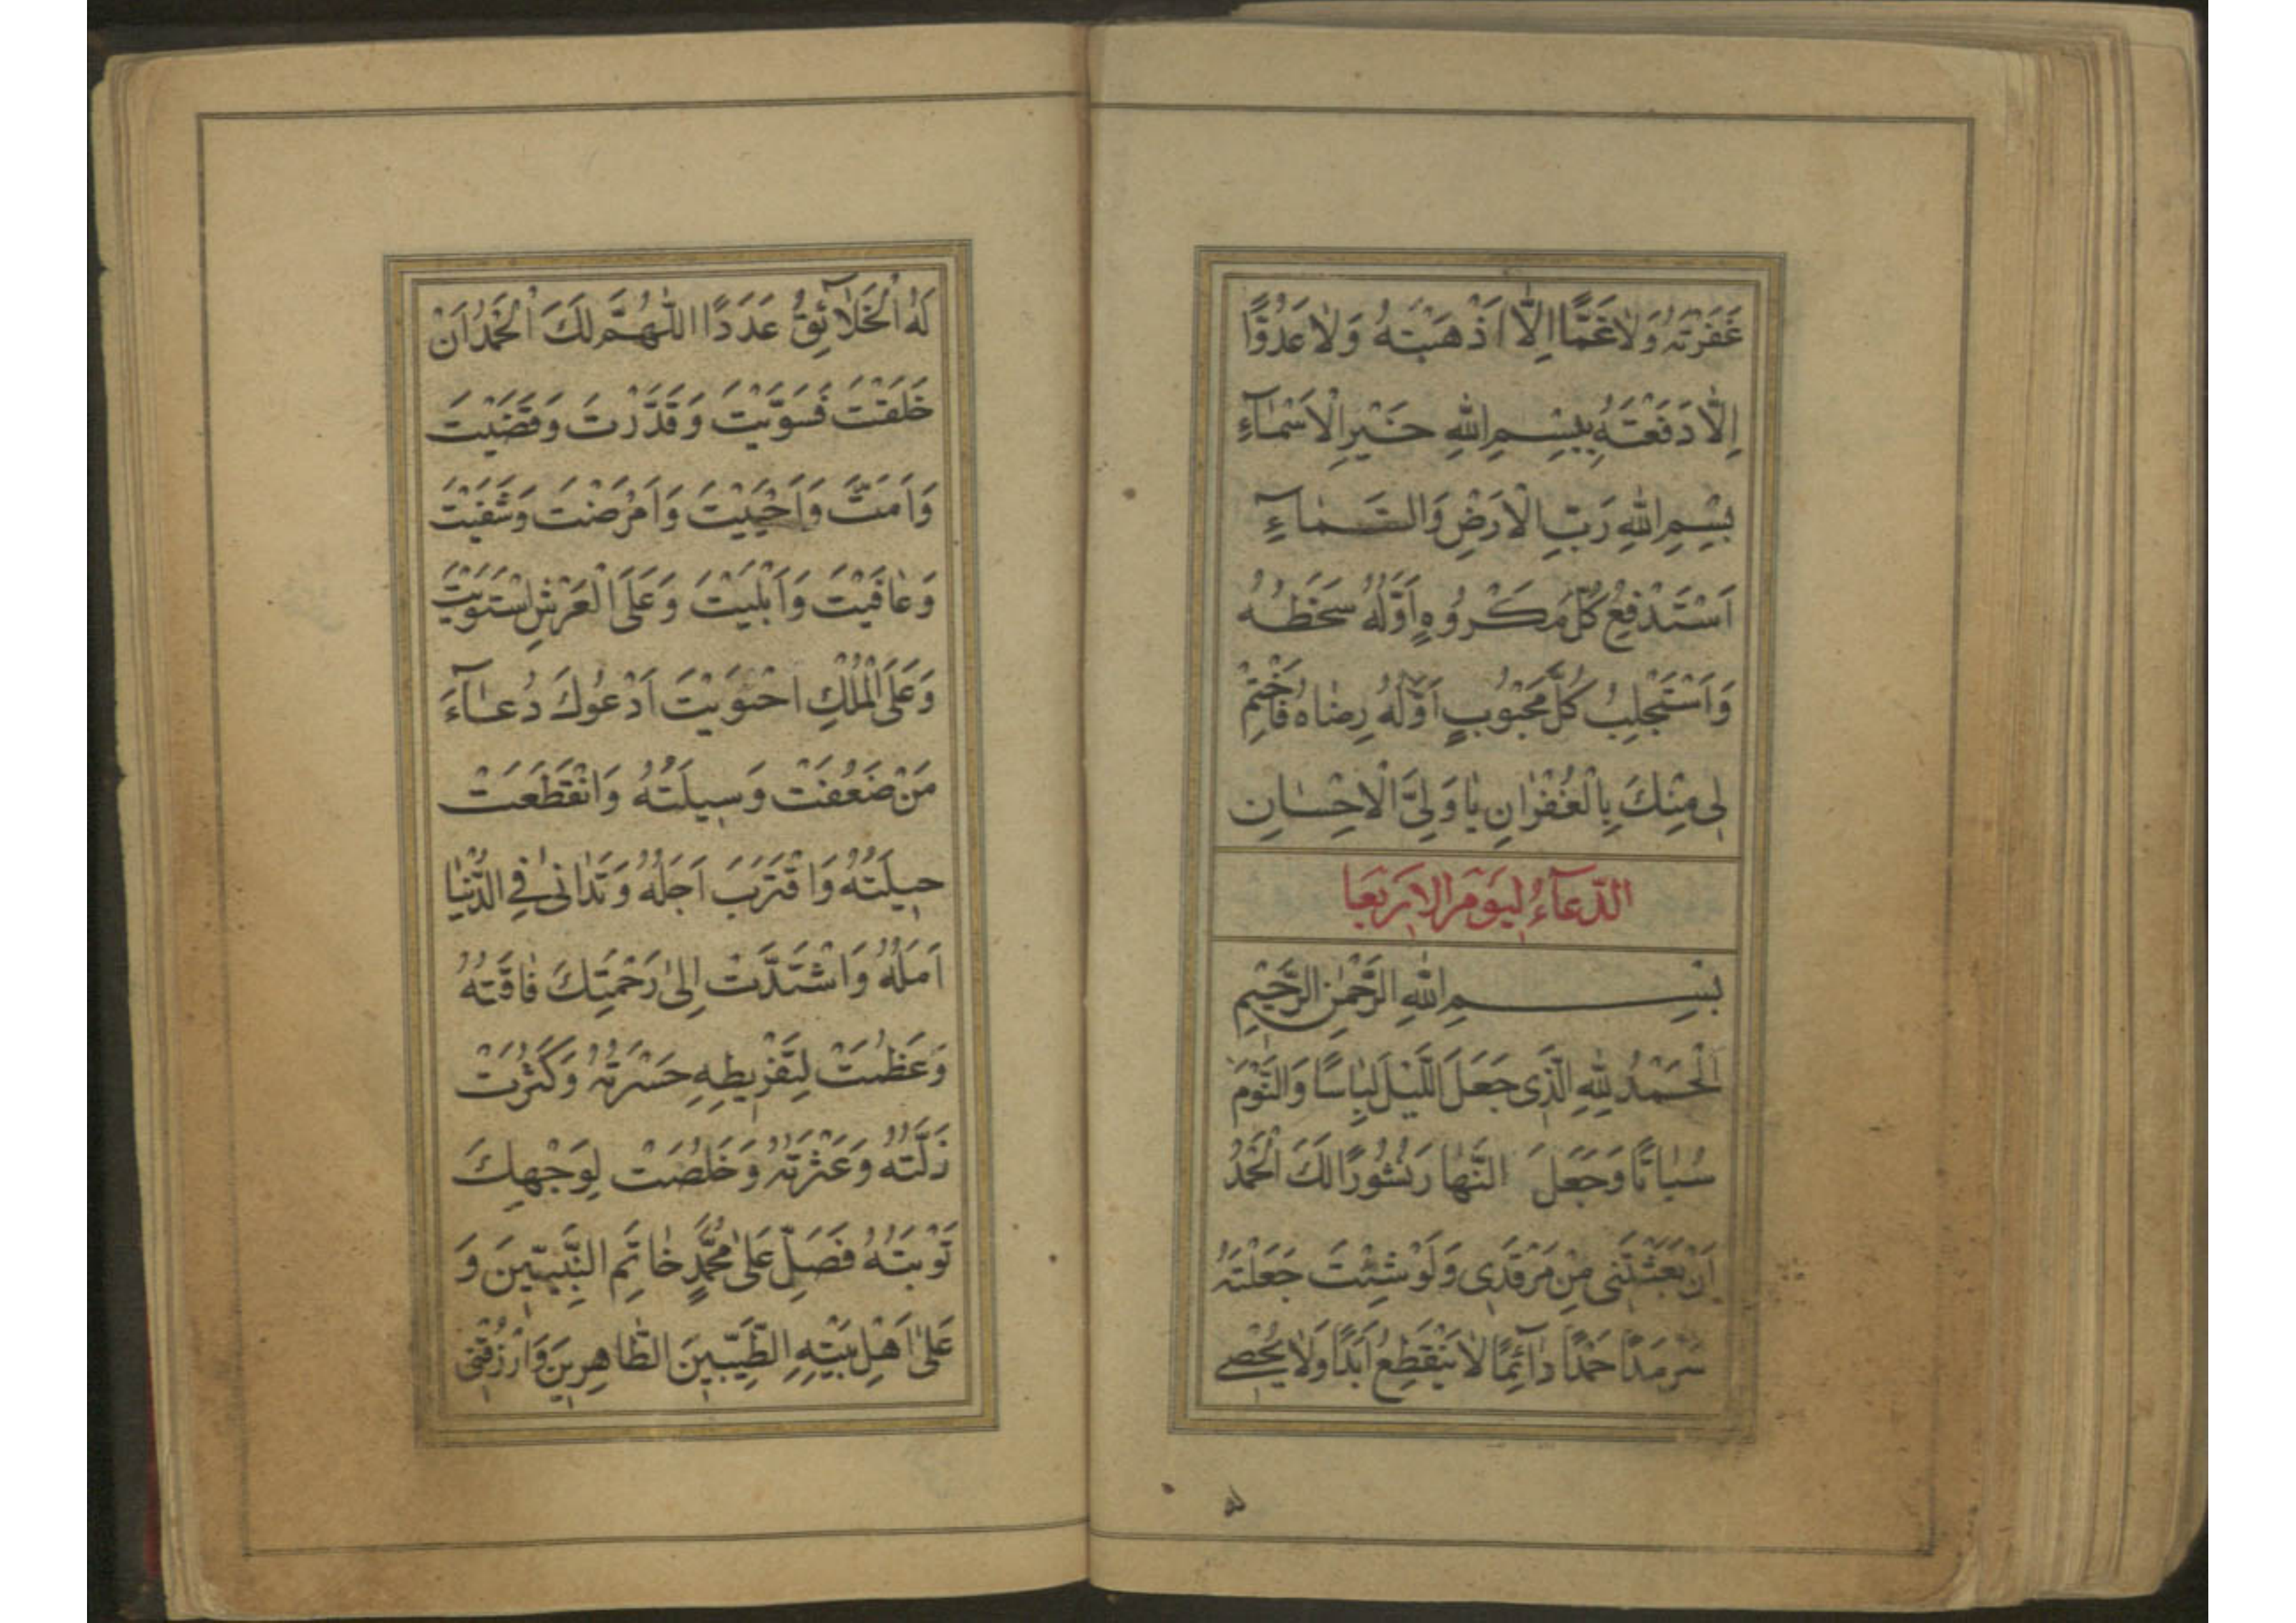 غَفَرْتَهُ وَلَا غَمًّا اِلَّا اَذْهَبْتَهُ وَلَا عَدُوًّا
اِلَّا دَفَعْتَهُ بِبِسْمِ اللهِ خَيْرِ الْاَسْمَآءِ
بِسْمِ اللهِ رَبِّ الْاَرْضِ وَالسَّمَآءِ
اَسْتَدْفِعُ كُلَّ مَكْرُوهٍ اَوَّلُهُ سَخَطُهُ
وَاَسْتَجْلِبُ كُلَّ مَحْبُوبٍ اَوَّلُهُ رِضَاهُ فَاخْتِمْ
لِى مِنْكَ بِالْغُفْرَانِ يَا وَلِىَّ الْاِحْسَانِ
الدّعَآءُ لِيَوْمِ الاَرْبَعَا
بِسْمِ اللهِ الرَّحْمٰنِ الرَّحِيْمِ
اَلْحَمْدُ لِلّٰهِ الَّذِى جَعَلَ اللَّيْلَ لِبَاسًا وَالنَّوْمَ
سُبَاتًا وَجَعَلَ النَّهَارَ نُشُورًا لَكَ الْحَمْدُ
اَنْ بَعَثْتَنِى مِنْ مَرْقَدِى وَلَوْ شِئْتَ جَعَلْتَهُ
سَرْمَدًا حَمْدًا دَآئِمًا لَا يَنْقَطِعُ اَبَدًا وَلَا يُحْصِے
لَهُ
لَهُ الْخَلَآئِقُ عَدَدًا اَللّٰهُمَّ لَكَ الْحَمْدُ اَنْ
خَلَقْتَ فَسَوَّيْتَ وَقَدَّرْتَ وَقَضَيْتَ
وَاَمَتَّ وَاَحْيَيْتَ وَاَمْرَضْتَ وَشَفَيْتَ
وَعَافَيْتَ وَاَبْلَيْتَ وَعَلَى الْعَرْشِ اسْتَوَيْتَ
وَعَلَى الْمُلْكِ احْتَوَيْتَ اَدْعُوكَ دُعَآءَ
مَنْ ضَعُفَتْ وَسِيلَتُهُ وَانْقَطَعَتْ
حِيلَتُهُ وَاقْتَرَبَ اَجَلُهُ وَتَدَانٰى فِى الدُّنْيَا
اَمَلُهُ وَاشْتَدَّتْ اِلٰى رَحْمَتِكَ فَاقَتُهُ
وَعَظُمَتْ لِتَفْرِيطِهِ حَسْرَتُهُ وَكَثُرَتْ
زَلَّتُهُ وَعَثْرَتُهُ وَخَلُصَتْ لِوَجْهِكَ
تَوْبَتُهُ فَصَلِّ عَلٰى مُحَمَّدٍ خَاتَمِ النَّبِيّيِنَ وَ
عَلٰى اَهْلِ بَيْتِهِ الطَّيِّبِينَ الطَّاهِرِينَ وَارْزُقْنِى